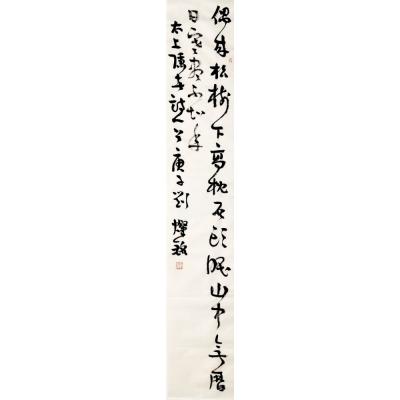 偶來松樹下高枕石頭眠山中無曆
日寒盡不知年
太上隱者詩 庚子劉